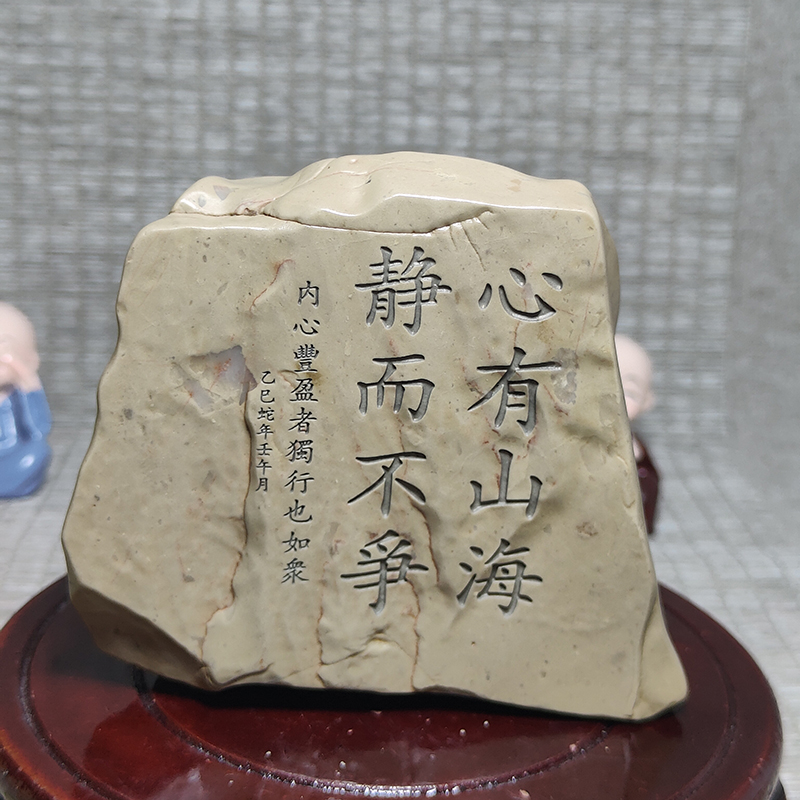 心有山海
静而不爭
内心豐盈者獨行也如衆
乙巳蛇年壬午月